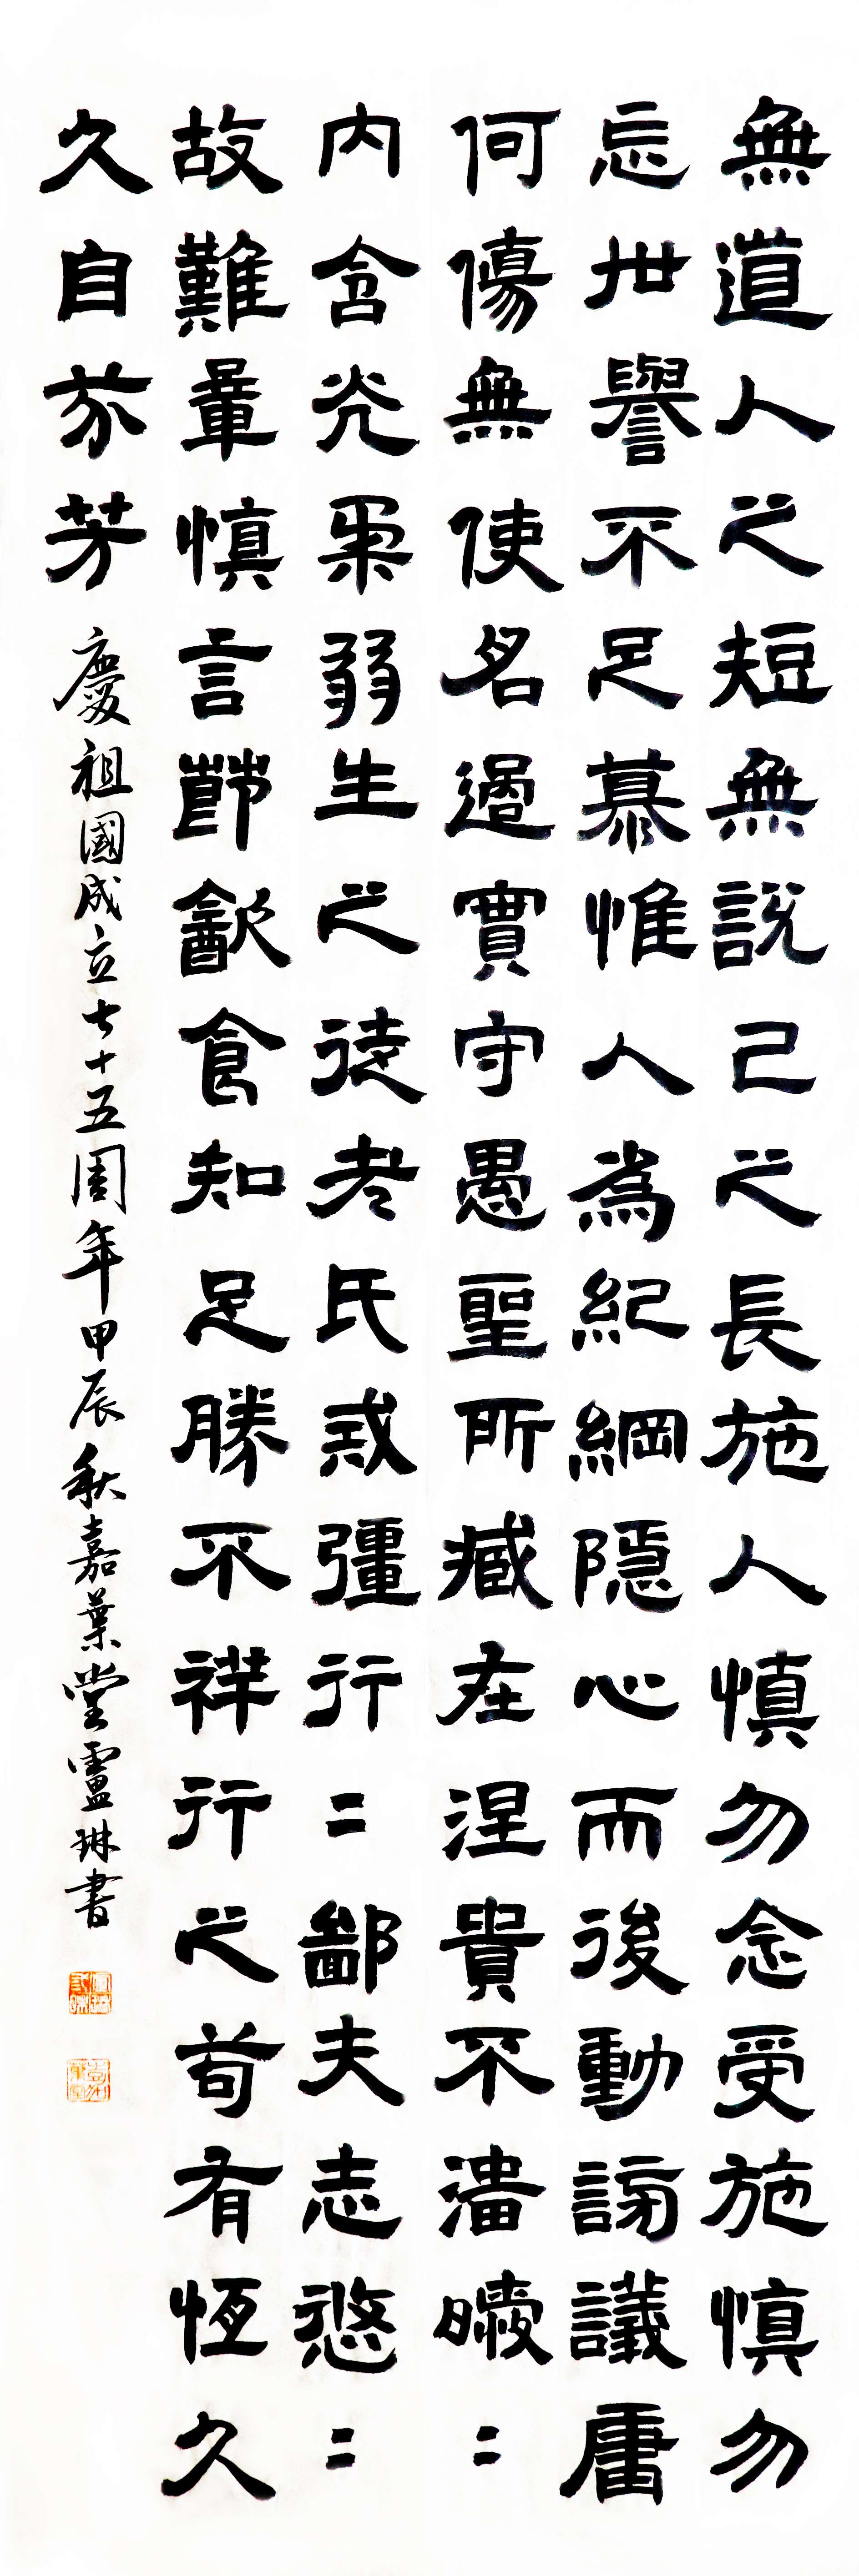 無道人之短無說己之長施人慎勿念受施慎勿
忘世譽不足慕惟人為紀綱隱心而後動謗議庸
何傷無使名過實守愚聖所臧在涅貴不淄曖=
內含光柔弱生之徒老氏戒彊行=鄙夫志悠=
故難量慎言節飲食知足勝不祥行之苟有恆久
久自芬芳 慶祖國成立七十五周年甲辰秋嘉葉堂盧琳書